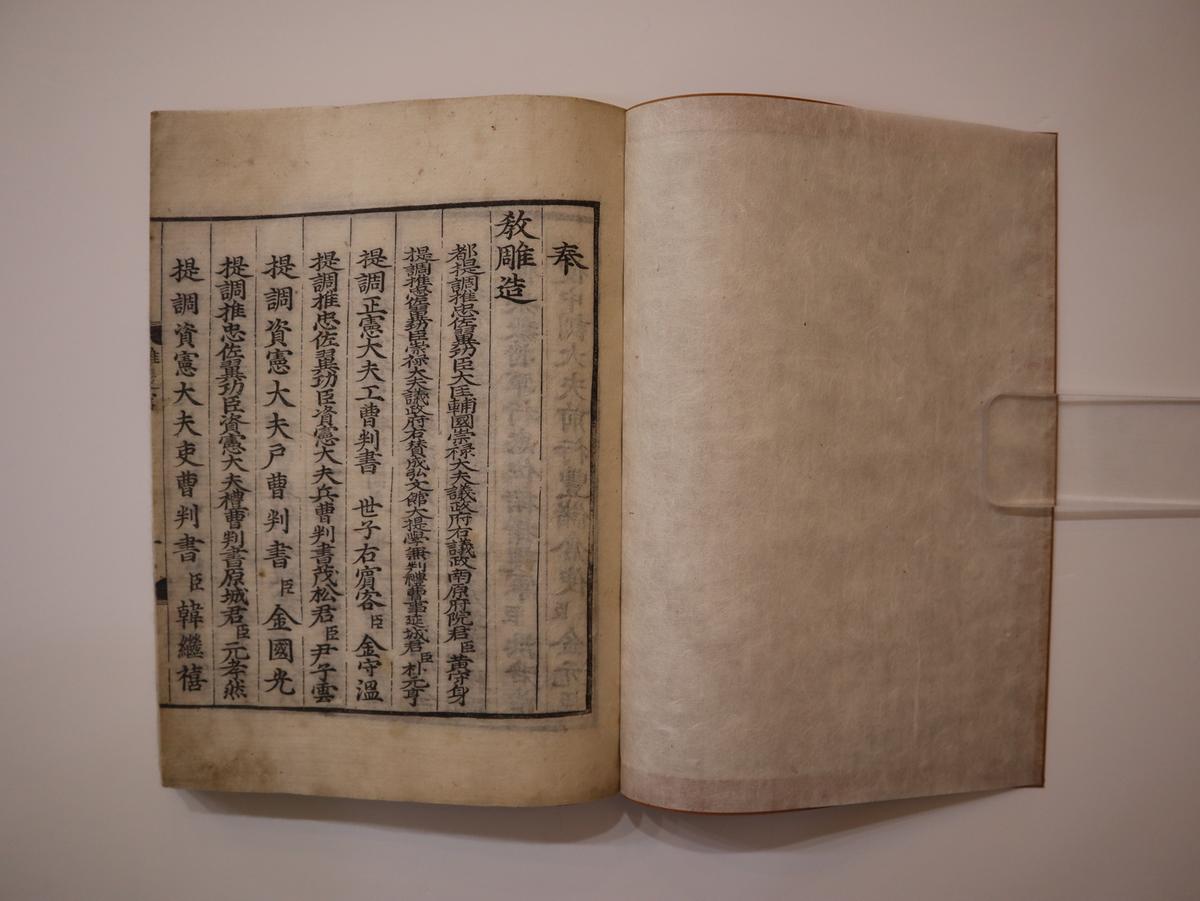 奉
教雕造
都提調推忠佐翼功臣大匡輔國崇祿大夫議政府右議政南原府院君臣黃守身
提調推忠佐翼功臣崇祿大夫議政府右贊成弘文館大提學兼判禮曹事延城君臣朴元亨
提調正憲大夫工曹判書 世子右賓客臣金守溫
提調推忠佐翼功臣資憲大夫兵曹判書茂松君臣尹子雲
提調資憲大夫戶曹判書臣金國光
提調推忠佐翼功臣資憲大夫禮曹判書原城君臣元孝然
提調資憲大夫吏曹判書臣韓繼禧